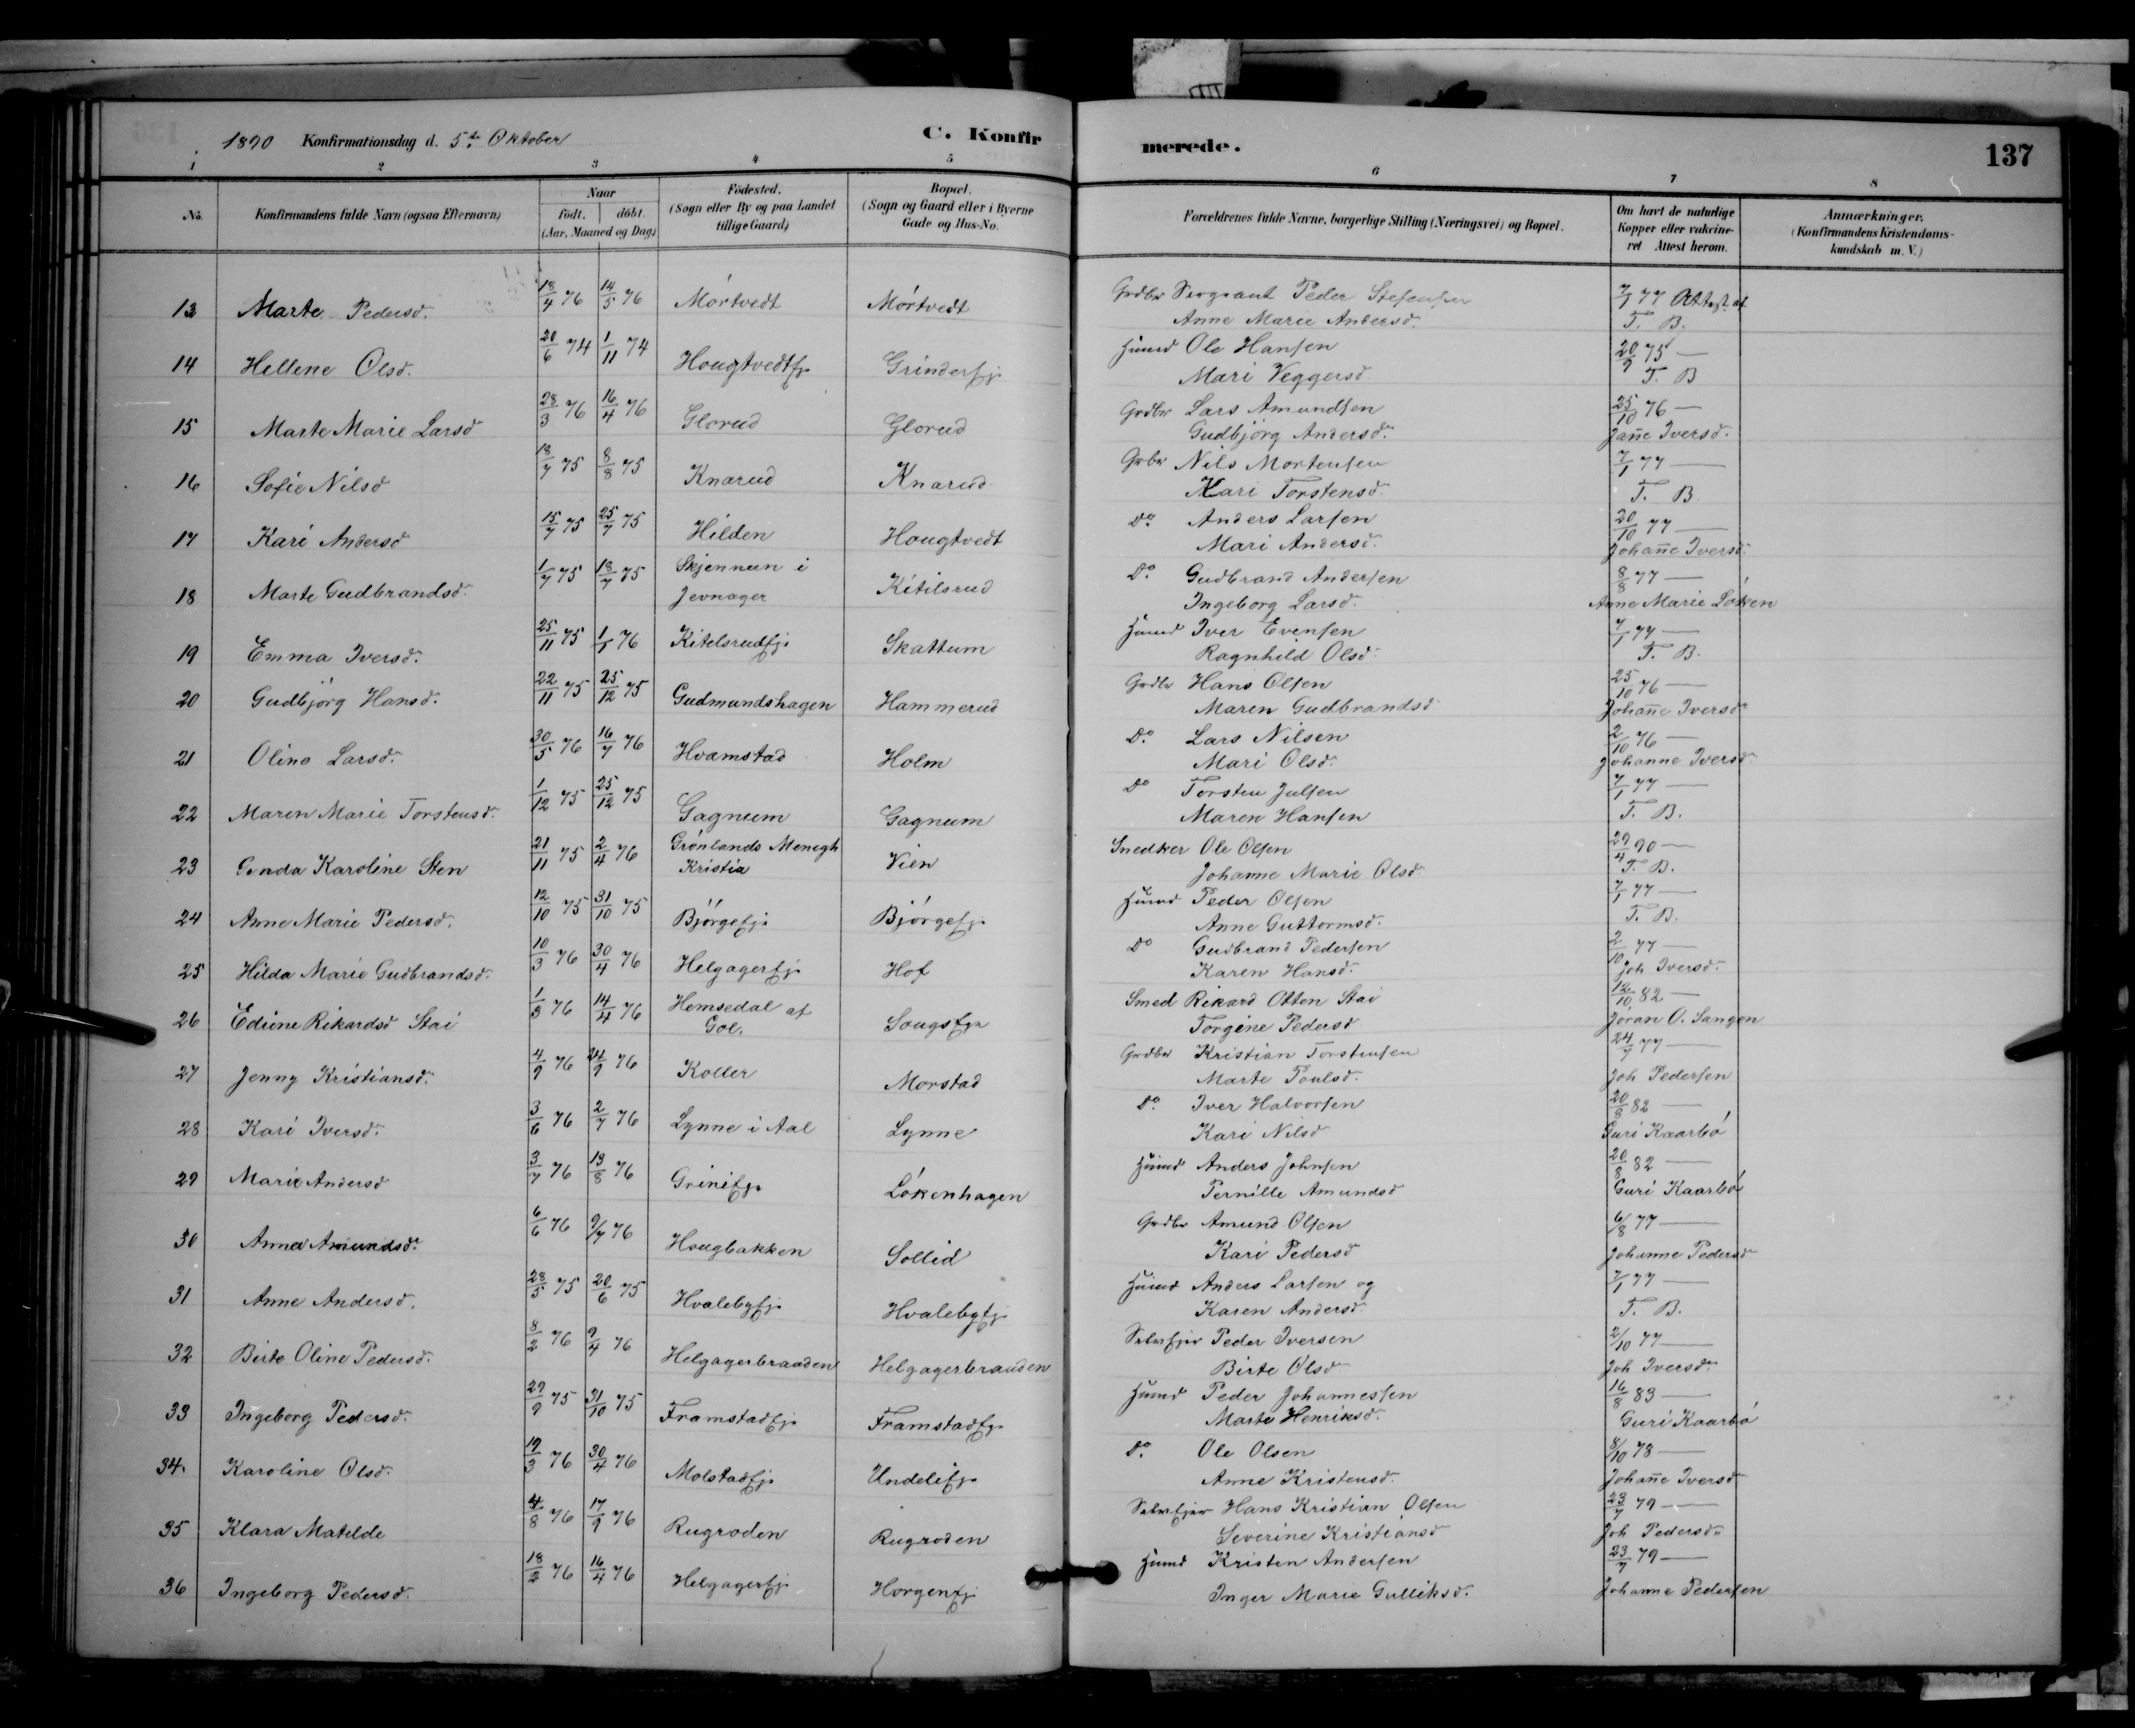 1890 Konfirmationsdag d. 5te Oktober
C. Konfirmerede.
137
1 2 3 4 5 6 7 8
No.
Konfirmandens fulde Navn (ogsaa Efternavn)
Naar födt. döbt. (Aar, Maaned og Dag)
Födested. (Sogn eller By og paa Landet tillige Gaard)
Bopæl. (Sogn og Gaard eller i Byerne Gade og Hus-No.
Forældrenes fulde Navne, borgerlige Stilling (Næringsvei) og Bopæl.
Om havt de naturlige Kopper eller vakcineret Attest herom.
Anmærkninger. (Konfirmandens Kristendomskundskab m. V.)
13 Marte Pedersd. 18/4 76 14/5 76 Mórtvedt Mórtvedt Grdbr Sergeant Peder Stefensen 7/1 77 Attest af
Anne Marie Andersd. T. B.
14 Hellene Olsd. 20/6 74 1/11 74 Hougtvedtej. Grinderej. Huusmd Ole Hansen 20/9 75 —
Mari Veggersd. T. B
15 Marte Marie Larsd 28/3 76 16/4 76 Glorud Glorud Grdbr Lars Amundsen 25/10 76 —
Gudbjörg Andersd. Jañe Iversd.
16 Sofie Nilsd 18/7 75 8/8 75 Knarud Knarud Grbr Nils Mortensen 7/1 77 —
Kari Torstensd. T. B.
17 Kari Andersd 15/7 75 25/7 75 Hilden Hougtvedt Do. Anders Larsen 20/10 77 —
Mari Andersd. Johañe Iversd.
18 Marte Gudbrandsd. 1/7 75 18/7 75 Skjennum i Jevnager Kitilsrud Do. Gudbrand Andersen 8/8 77 —
Ingeborg Larsd. Anne Marie Lóken
19 Emma Iversd. 25/11 75 1/1 76 Kitelsrudej. Skattum Huusmd Iver Evensen 7/1 77 —
Ragnhild Olsd. T. B.
20 Gudbjórg Hansd. 22/11 75 25/12 75 Gudmundshagen Hammerud Grdbr Hans Olsen 25/10 76 —
Maren Gudbrandsd Johañe Iversd
21 Oline Larsd. 30/5 76 16/7 76 Hvamstad Holm Do. Lars Nilsen 2/10 76 —
Mari Olsd. Johanne Iversd.
22 Maren Marie Torstensd. 1/12 75 25/12 75 Gagnum Gagnum Do Torsten Julsen 7/1 77 —
Maren Hansen T. B.
23 Gonda Karoline Sten 21/11 75 2/4 76 Grónlands Menigh Kristia Vien Snedker Ole Olsen 29/4 90 —
Johanne Marie Olsd. T. B.
24 Anne Marie Pedersd. 12/10 75 31/10 75 Bjórgeej. Bjórgeej. Huusmd Peder Olsen 7/1 77 —
Anne Guttormsd. T. B.
25 Hilda Marie Gudbrandsd. 10/3 76 30/4 76 Helgagerej. Hof Do Gudbrand Pedersen 2/10 77 —
Karen Hansd. Joh Iversd.
26 Edrine Rikardsd Stai 1/3 76 14/4 76 Hemsedal af Gol. Sougsej. Smed Rikard Otten Stai 12/10 82 —
Torgine Pedersd Jóran O. Sangen
27 Jenny Kristiansd. 4/9 76 24/9 76 Koller Morstad Grdbr Kristian Torstensen 24/7 77 —
Marte Poulsd. Joh Pedersen
28 Kari Iversd. 3/6 76 2/7 76 Lynne i Aal Lynne Do. Iver Halvorsen 20/8 82 —
Kari Nilsd Guri Kaarbó
29 Marie Andersd 3/7 76 13/8 76 Griniej. Lókenhagen Huusmd Anders Johnsen 20/8 82 —
Pernille Amundsd Guri Kaarbó
30 Anna Amundsd. 6/6 76 9/7 76 Hougbakken Sollid Grdbr Amund Olsen 6/8 77 —
Kari Pedersd Johanne Pedersd
31 Anne Andersd. 28/5 75 20/6 75 Hvalebyej. Hvalebyej. Huusmd Anders Larsen og 7/1 77 —
Karen Andersd. T. B.
32 Birte Oline Pedersd. 8/2 76 9/4 76 Helgagerbraaden Helgagerbraaden Selveier Peder Iversen 2/10 77 —
Birte Olsd Joh Iversd.
33 Ingeborg Pedersd. 29/9 75 31/10 75 Framstadej. Framstadej. Huusmd Peder Johannessen 16/8 83 —
Marte Henriksd. Guri Kaarbó
34. Karoline Olsd. 19/3 76 30/4 76 Molstadej. Undeliej. Do. Ole Olsen 8/10 78 —
Anne Kristensd. Johañe Iversd
35 Klara Matilde 4/8 76 17/9 76 Rugroden Rugroden Selveier Hans Kristian Olsen 23/7 79 —
Severine Kristiansd Joh Pedersd.
36 Ingeborg Pedersd. 18/2 76 16/4 76 Helgagerej. Horgenej. Huusmd Kristen Andersen 23/7 79 —
Inger Marie Gulliksd. Johanne Pedersen